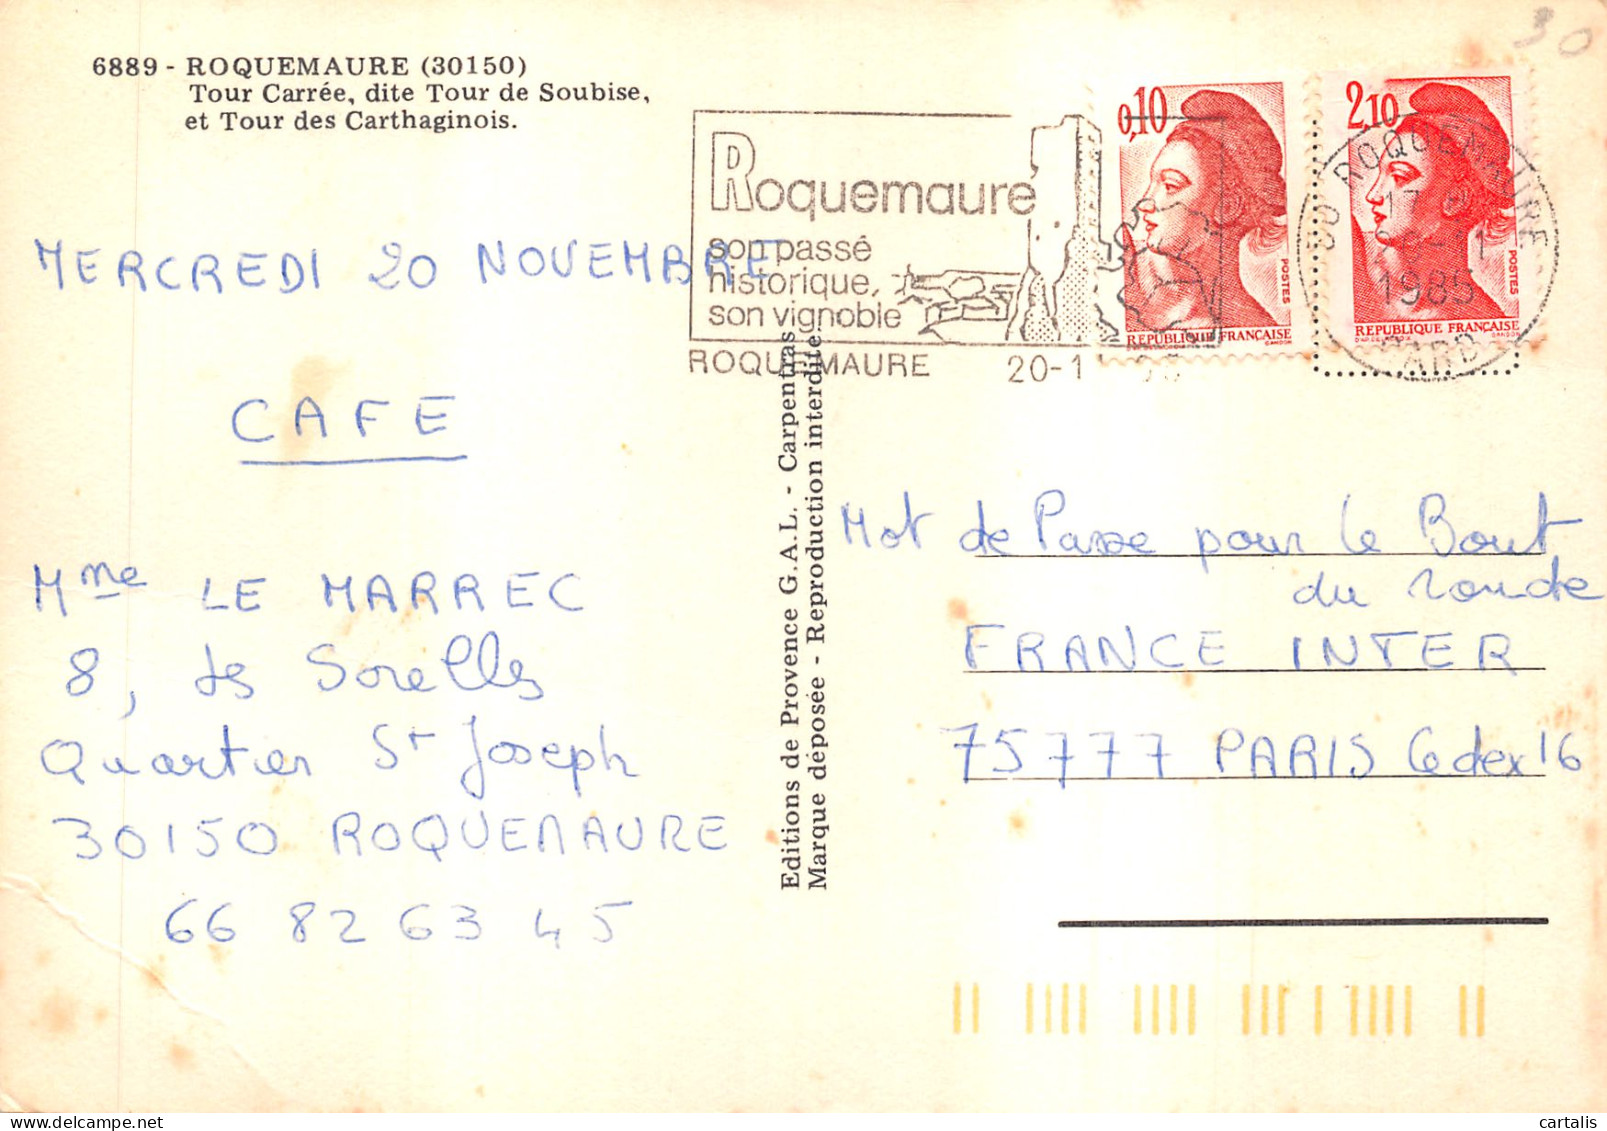 30
6889 - ROQUEMAURE (30150)
Tour Carrée, dite Tour de Soubise,
et Tour des Carthaginois.
Roquemaure
son passé
historique,
son vignoble
ROQUEMAURE 20-1
0,10
POSTES
REPUBLIQUE FRANÇAISE
2,10
POSTES
REPUBLIQUE FRANÇAISE
ROQUEMAURE
1985
GARD
MERCREDI 20 NOVEMBRE
CAFE
Mme LE MARREC
8, les Sorelles
Quartier St Joseph
30150 ROQUEMAURE
66 82 63 45
Editions de Provence G.A.L. - Carpentras
Marque déposée - Reproduction interdite
Mot de Passe pour le Bout
du monde
FRANCE INTER
75777 PARIS Cedex 16
cartalis